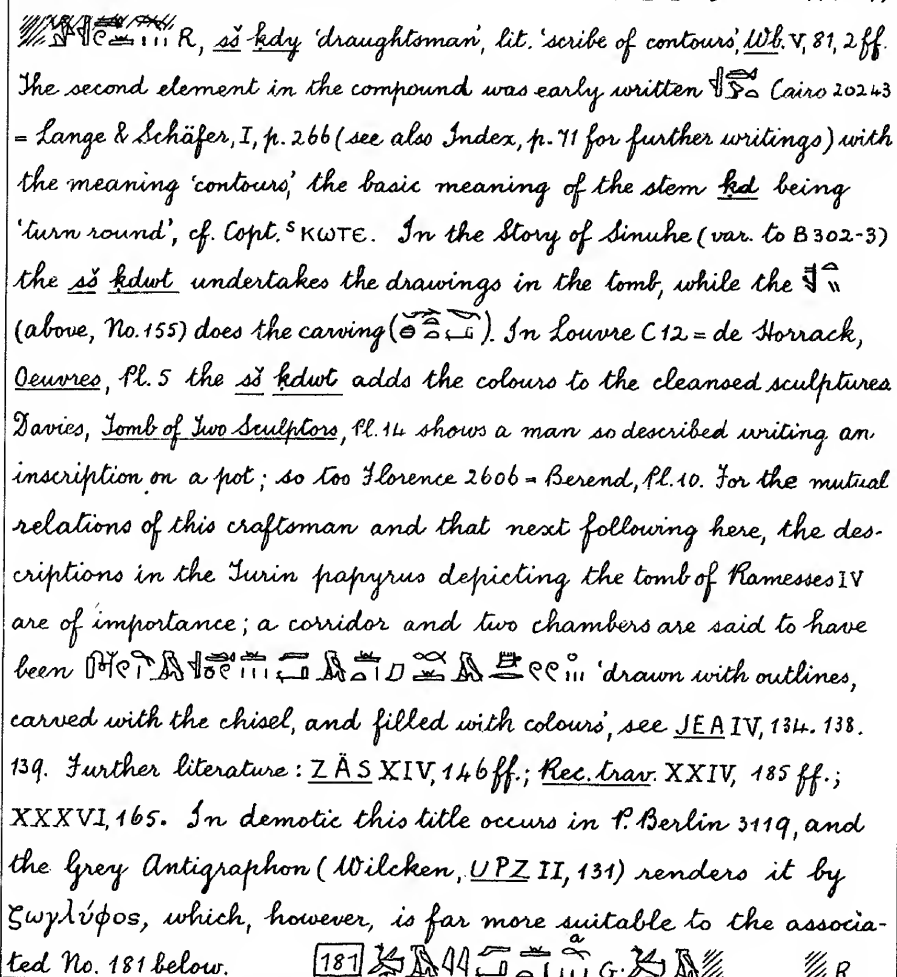 R, sš ḳdy 'draughtsman', lit. 'scribe of contours', Wb. V, 81, 2 ff.
The second element in the compound was early written Cairo 20243
= Lange & Schäfer, I, p. 266 (see also Index, p. 71 for further writings) with
the meaning 'contours,' the basic meaning of the stem ḳd being
'turn round', cf. Copt. ˢ ⲕⲱⲧⲉ. In the Story of Sinuhe (var. to B 302-3)
the sš ḳdwt undertakes the drawings in the tomb, while the
(above, No. 155) does the carving ( ). In Louvre C 12 = de Horrack,
Oeuvres, Pl. 5 the sš ḳdwt adds the colours to the cleansed sculptures
Davies, Tomb of Two Sculptors, Pl. 14 shows a man so described writing an
inscription on a pot; so too Florence 2606 = Berend, Pl. 10. For the mutual
relations of this craftsman and that next following here, the des-
criptions in the Turin papyrus depicting the tomb of Ramesses IV
are of importance; a corridor and two chambers are said to have
been 'drawn with outlines,
carved with the chisel, and filled with colours', see JEA IV, 134. 138.
139. Further literature: ZÄS XIV, 146 ff.; Rec. trav. XXIV, 185 ff.;
XXXVI, 165. In demotic this title occurs in P. Berlin 3119, and
the Grey Antigraphon (Wilcken, UPZ II, 131) renders it by
ζωγλύφος, which, however, is far more suitable to the associa-
ted No. 181 below. 181 a G. R